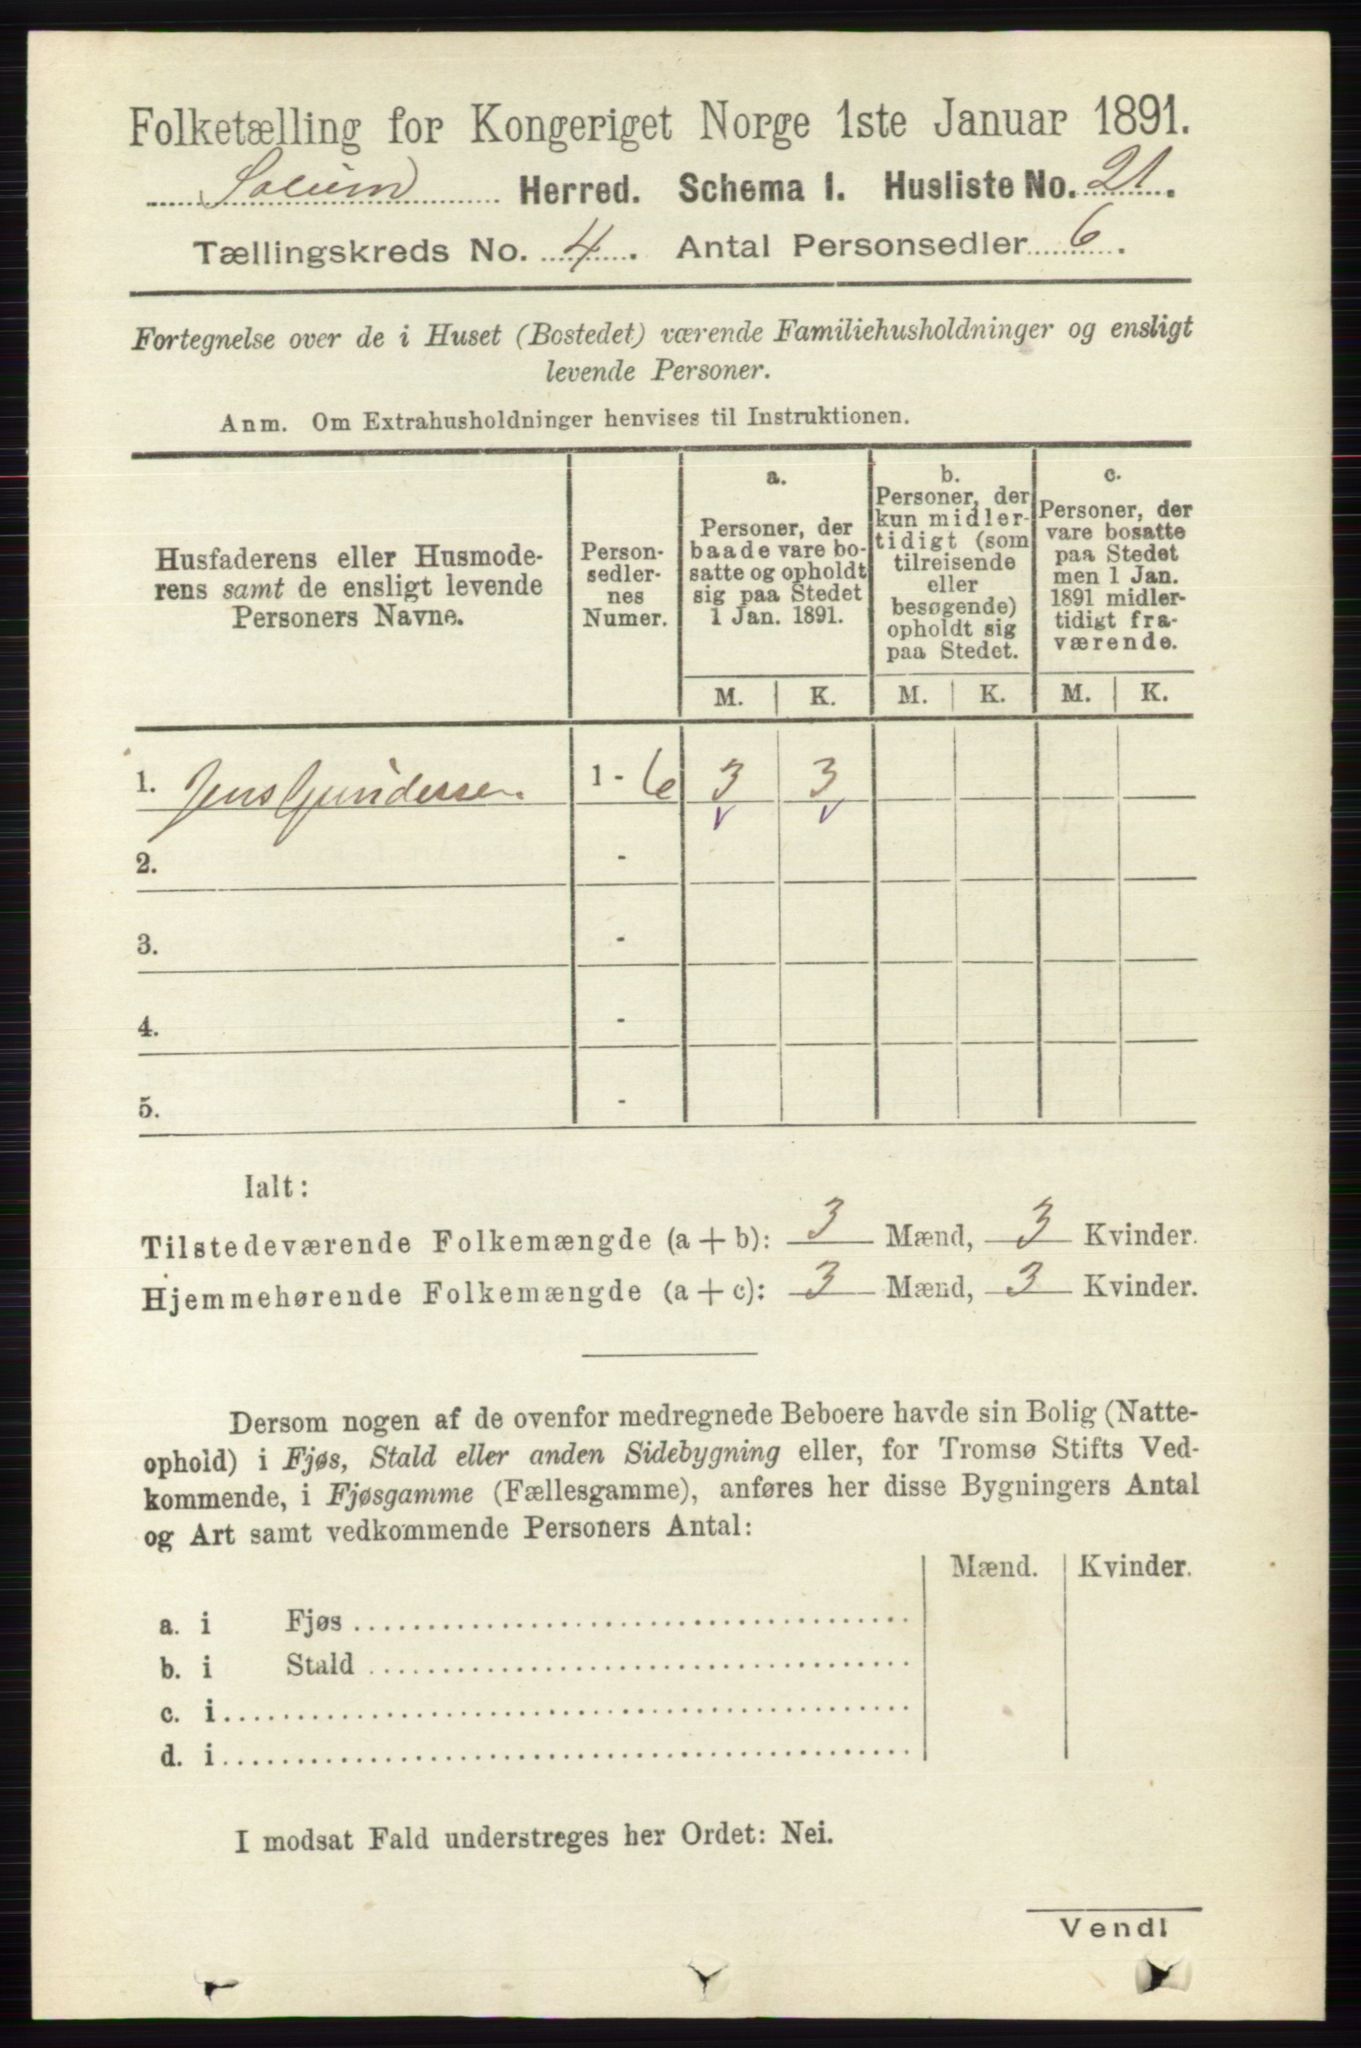 Folketælling for Kongeriget Norge 1ste Januar 1891.
Solum Herred. Schema I. Husliste No. 21.
Tællingskreds No. 4. Antal Personsedler 6.
Fortegnelse over de i Huset (Bostedet) værende Familiehusholdninger og ensligt
levende Personer.
Anm. Om Extrahusholdninger henvises til Instruktionen.
Husfaderens eller Husmode-
rens samt de ensligt levende
Personers Navne.
Person-
sedler-
nes
Numer.
a.
Personer, der
baade vare bo-
satte og opholdt
sig paa Stedet
1 Jan. 1891.
b.
Personer, der
kun midler-
tidigt (som
tilreisende
eller
besøgende)
opholdt sig
paa Stedet.
c.
Personer, der
vare bosatte
paa Stedet
men 1 Jan.
1891 midler-
tidigt fra-
værende.
M. K. M. K. M. K.
1. Jens Gundersen. 1 - 6 3 3
2. -
3. -
4. -
5. -
Ialt:
Tilstedeværende Folkemængde (a + b): 3 Mænd, 3 Kvinder.
Hjemmehørende Folkemængde (a + c): 3 Mænd, 3 Kvinder.
Dersom nogen af de ovenfor medregnede Beboere havde sin Bolig (Natte-
ophold) i Fjøs, Stald eller anden Sidebygning eller, for Tromsø Stifts Ved-
kommende, i Fjøsgamme (Fællesgamme), anføres her disse Bygningers Antal
og Art samt vedkommende Personers Antal:
Mænd. Kvinder.
a. i Fjøs
b. i Stald
c. i
d. i
I modsat Fald understreges her Ordet: Nei.
Vend!